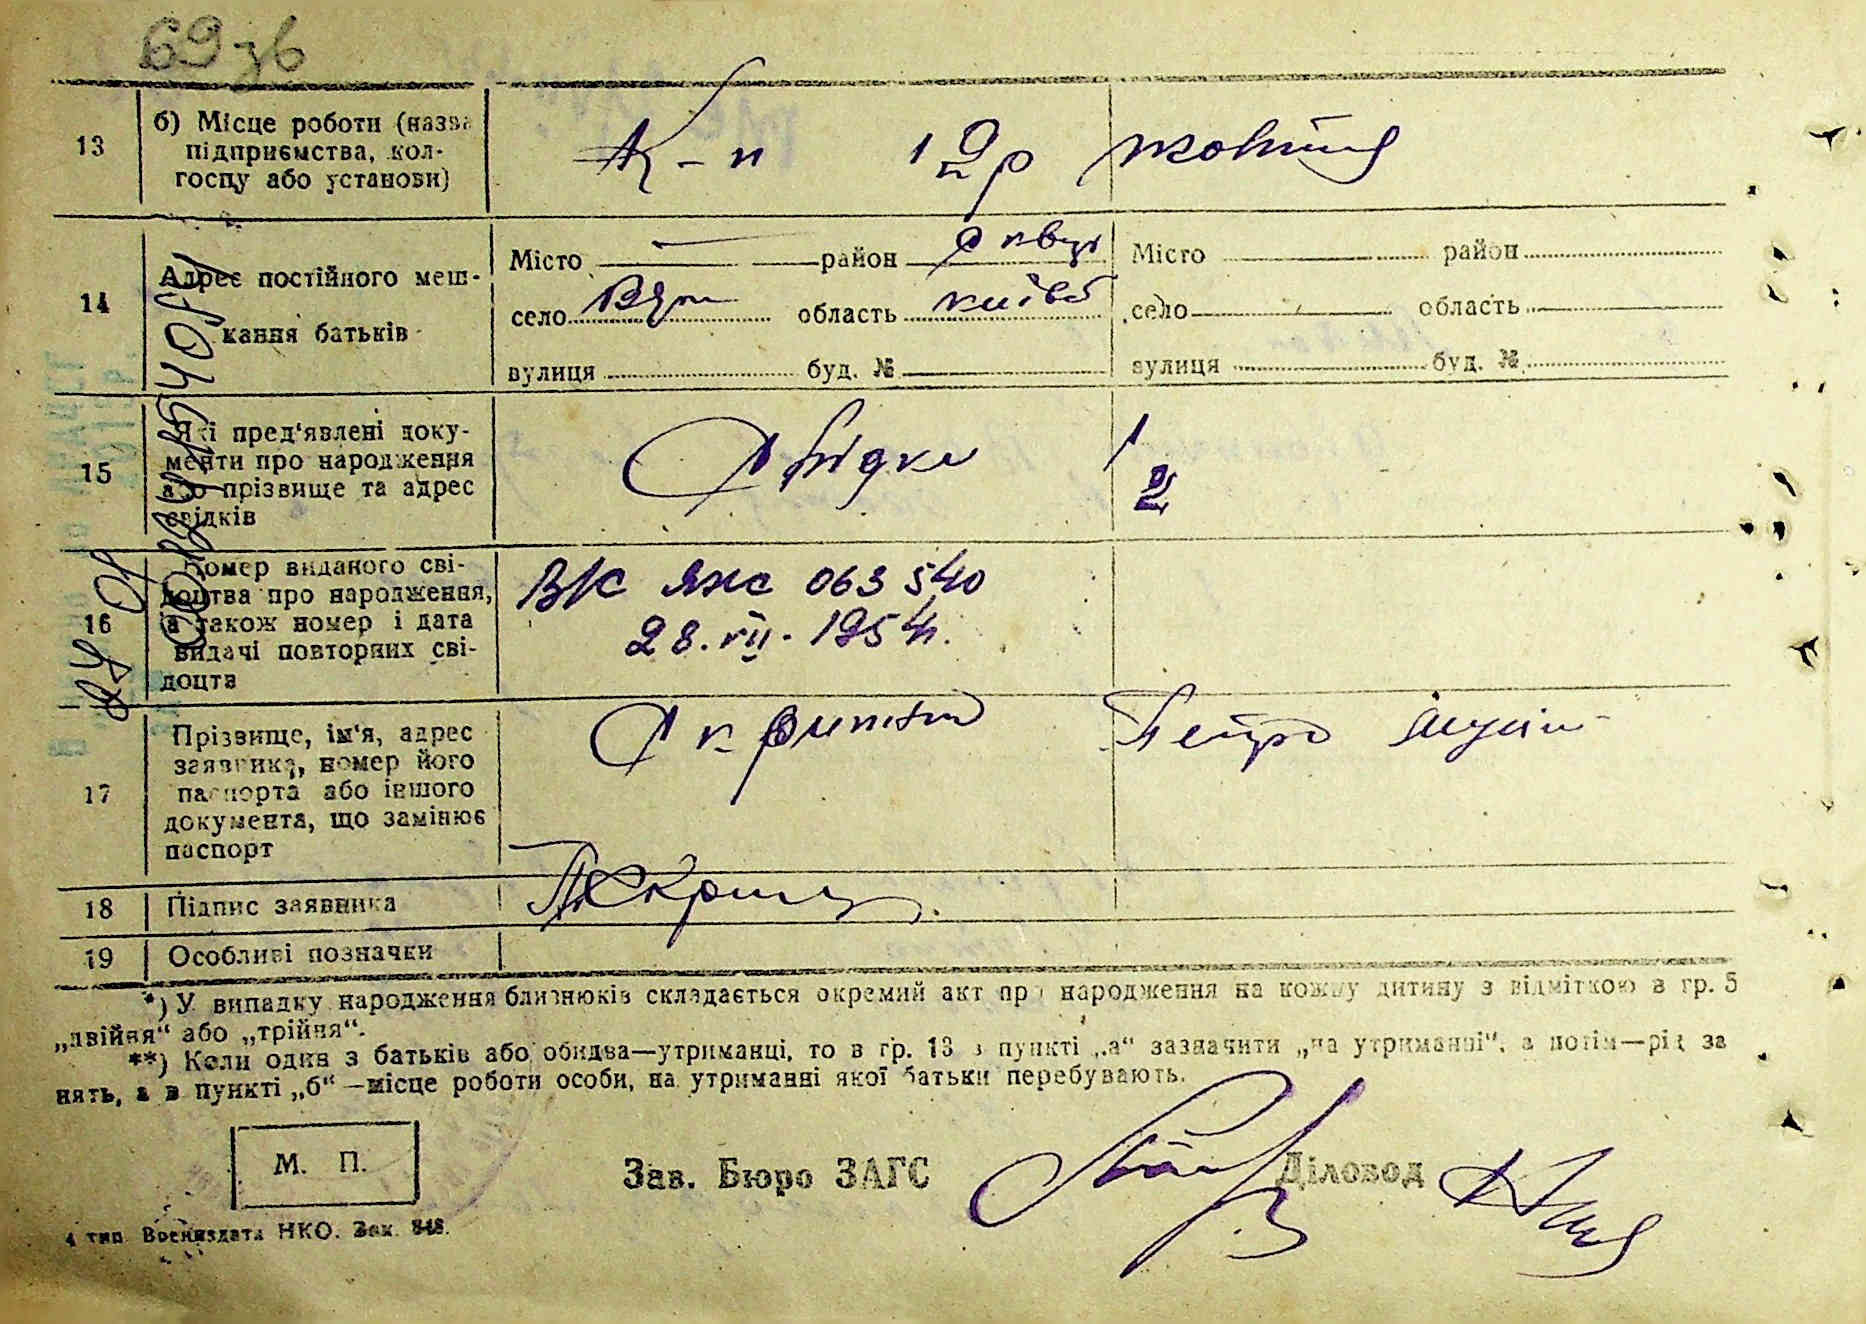 69 зв
13
б) Місце роботи (назва
підприємства, кол-
госпу або установи)
К-п 12 р жовтня
14
Адрес постійного меш-
кання батьків
Місто — район Сквир
село область Київс
вулиця буд. №
Місто район
село область
вулиця буд. №
15
Які пред'явлені доку-
менти про народження
або прізвище та адрес
свідків
Свідки 1
2
16
Номер виданого сві-
доцтва про народження,
а також номер і дата
видачі повторних сві-
доцтв
063540
28.VII.1954
17
Прізвище, ім'я, адрес
заявника, номер його
паспорта або іншого
документа, що замінює
паспорт
Петро
18
Підпис заявника
19
Особливі позначки
*) У випадку народження близнюків складається окремий акт про народження на кожну дитину з відміткою в гр. 5
„двійня“ або „трійня“.
**) Коли один з батьків або обидва—утриманці, то в гр. 13 в пункті „а“ зазначити „на утриманні“, а потім—рід за
нять, а в пункті „б“—місце роботи особи, на утриманні якої батьки перебувають.
М. П.
Зав. Бюро ЗАГС
Діловод
4 тип. Воениздата НКО. Зак. 848.